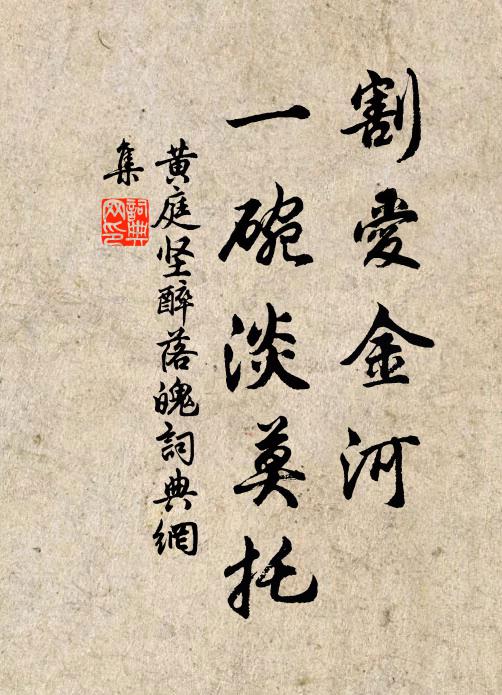 割愛金河
一碗淡莫托
黄庭坚醉落魄詞典網
集
詞典网印